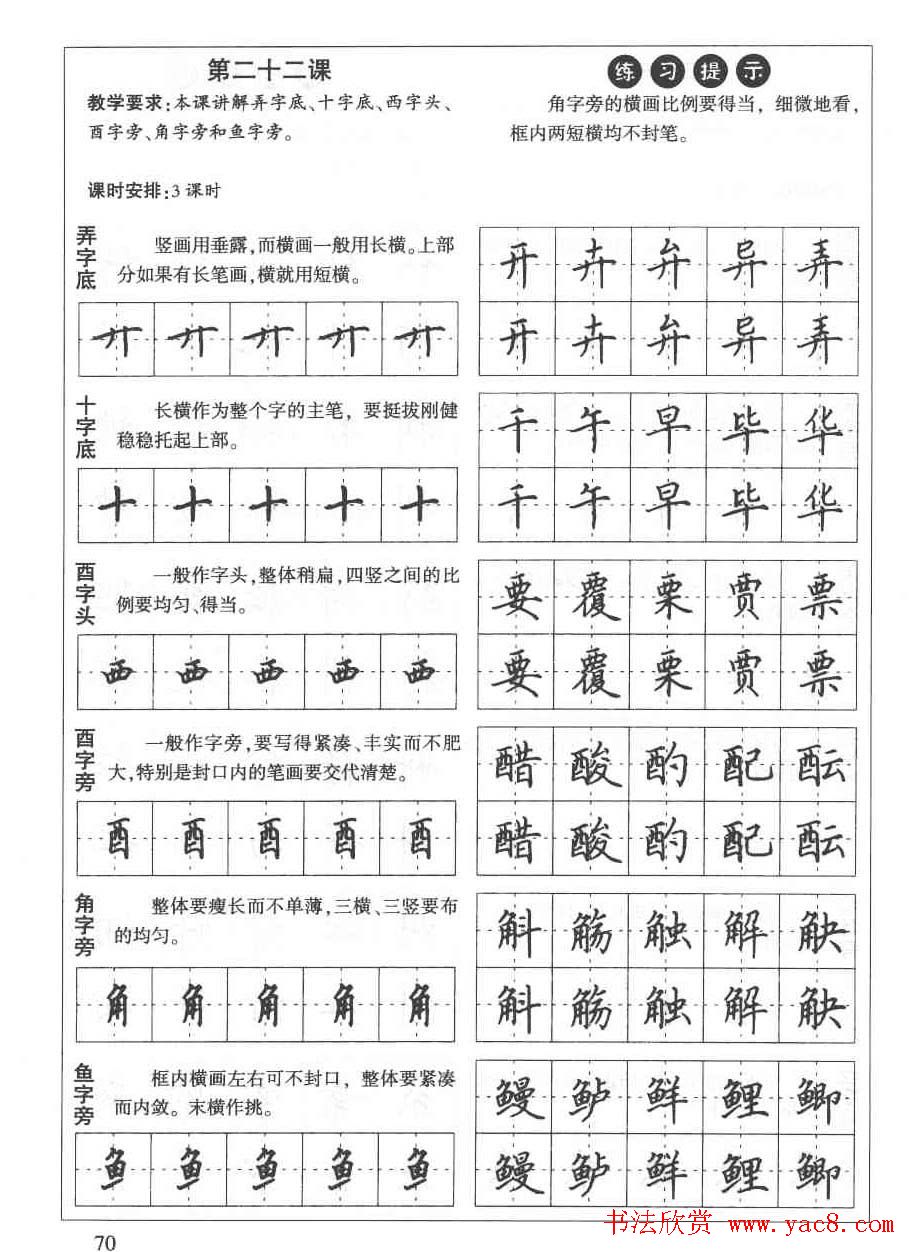 第二十二课
教学要求:本课讲解弄字底、十字底、西字头、
酉字旁、角字旁和鱼字旁。
课时安排:3课时
练习提示
角字旁的横画比例要得当，细微地看，
框内两短横均不封笔。
弄字底
竖画用垂露,而横画一般用长横。上部
分如果有长笔画,横就用短横。
廾 廾 廾 廾 廾
开 卉 弁 异 弄
开 卉 弁 异 弄
十字底
长横作为整个字的主笔，要挺拔刚健
稳稳托起上部。
十 十 十 十 十
千 午 早 毕 华
千 午 早 毕 华
酉字头
一般作字头,整体稍扁,四竖之间的比
例要均匀、得当。
覀 覀 覀 覀 覀
要 覆 栗 贾 票
要 覆 栗 贾 票
酉字旁
一般作字旁,要写得紧凑、丰实而不肥
大,特别是封口内的笔画要交代清楚。
酉 酉 酉 酉 酉
醋 酸 酌 配 酝
醋 酸 酌 配 酝
角字旁
整体要瘦长而不单薄,三横、三竖要布
的均匀。
角 角 角 角 角
斛 觞 触 解 觖
斛 觞 触 解 觖
鱼字旁
框内横画左右可不封口，整体要紧凑
而内敛。末横作挑。
鱼 鱼 鱼 鱼 鱼
鳗 鲈 鲜 鲤 鲫
鳗 鲈 鲜 鲤 鲫
书法欣赏 www.yac8.com
70